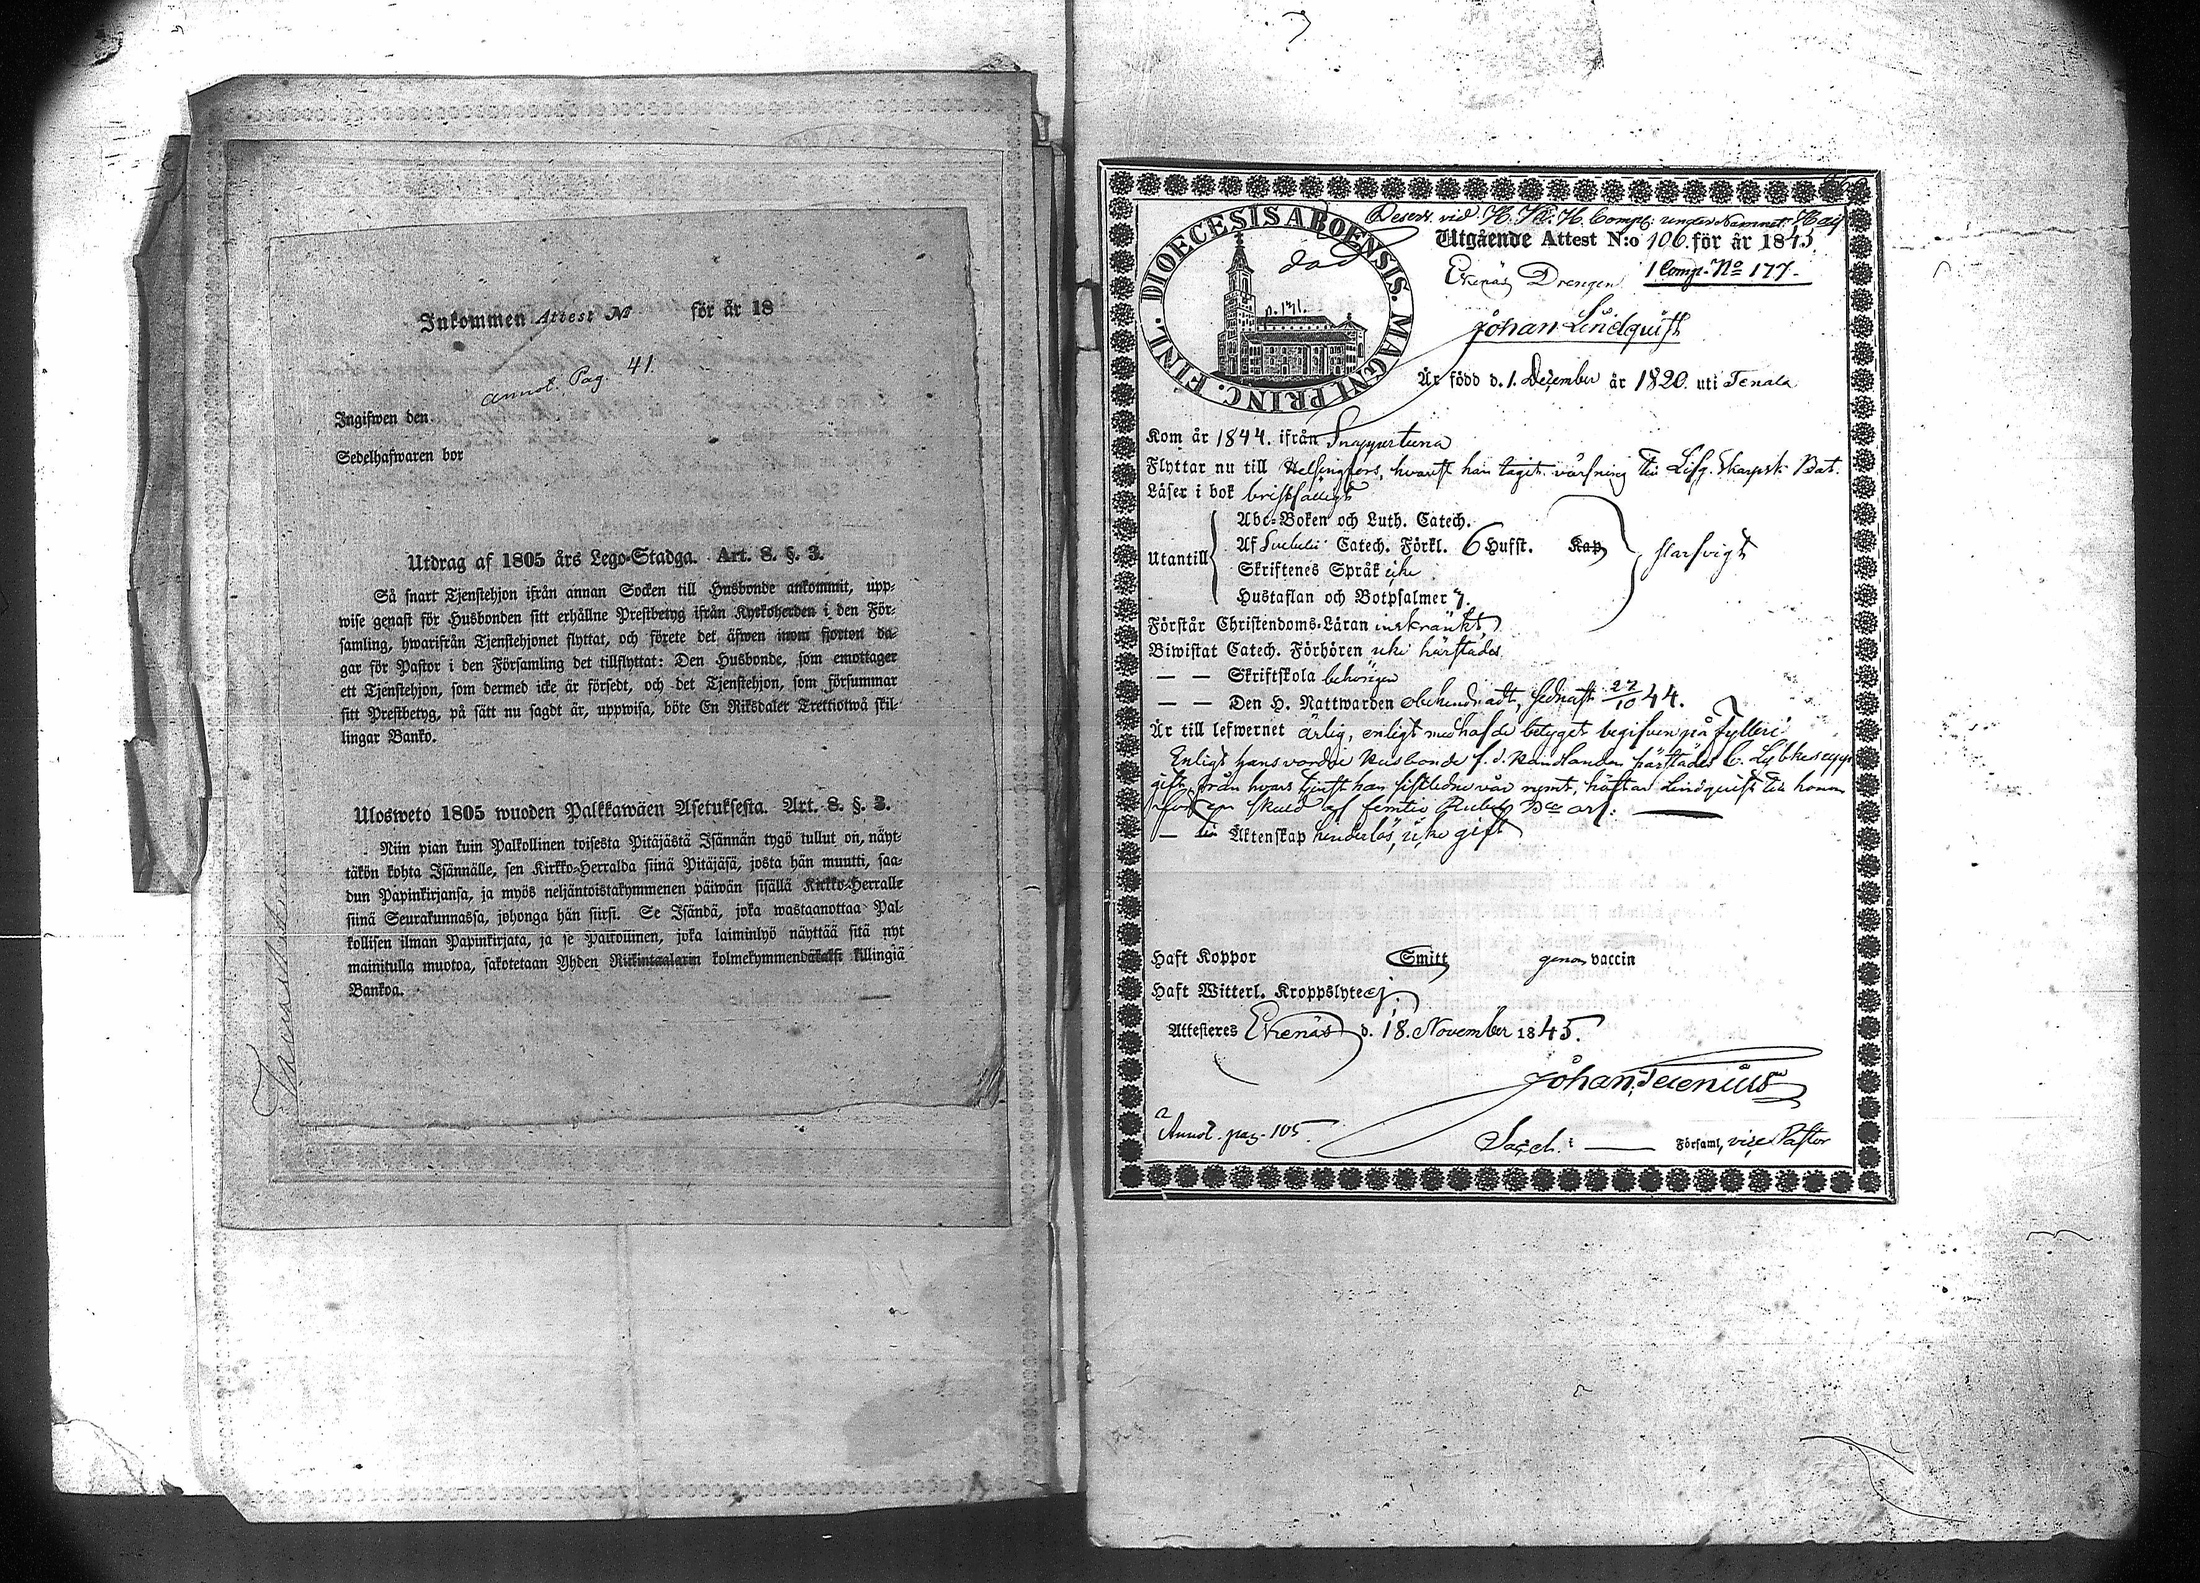 Inkommen Attest No för år 18
Annot. Pag. 41.
Ingifwen den
Sedelhafwaren bor
Utdrag af 1805 års Lego-Stadga. Art. 8. §. 3.
Så snart Tjenstehjon ifrån annan Socken till Husbonde ankommit, upp-
wise genast för Husbonden sitt erhållne Prestbetyg ifrån Kyrkoherden i den För-
samling, hwarifrån Tjenstehjonet flyttat, och förete det äfwen inom fjorton da-
gar för Pastor i den Församling det tillflyttat: Den Husbonde, som emottager
ett Tjenstehjon, som dermed icke är försedt, och det Tjenstehjon, som försummar
sitt Prestbetyg, på sätt nu sagdt är, uppwisa, böte En Riksdaler Trettiotwå skil-
lingar Banko.
Ulosweto 1805 wuoden Palkkawäen Asetuksesta. Art. 8. §. 3.
Niin pian kuin Palkollinen toisesta Pitäjästä Isännän tygö tullut on, näyt-
täkön kohta Isännälle, sen Kirkko-Herralda siinä Pitäjäsä, josta hän muutti, saa-
dun Papinkirjansa, ja myös neljäntoistakymmenen päiwän sisällä Kirkko-Herralle
siinä Seurakunnassa, johonga hän siirsi. Se Isändä, joka wastaanottaa Pal-
kollisen ilman Papinkirjata, ja se Palkollinen, joka laiminlyö näyttää sitä nyt
mainitulla muotoa, sakotetaan Yhden Riikintaalarin kolmekymmendäkaksi killingiä
Bankoa.
Desert. vid H. Kl. H. Comp: under Namnet Haij
DIOECESIS ABOENSIS. MAGNI PRINC. FINL.
Utgående Attest N:o 106. för år 1845.
död
Ekenäs Drengen 1 Comp. No 177.
p. 171.
Johan Lindquist
Är född d. 1. December år 1820. uti Tenala
Kom år 1844. ifrån Snappertuna
Flyttar nu till Helsingfors, hvarest han tagit värfning till Lifg. Skarpsk. Bat.
Läser i bok bristfälligt
Abc-Boken och Luth. Catech.
Utantill Af Svebelii Catech. Förkl. 6 Hufst. Kap. starfvigt
Skriftenes Språk icke
Hustaflan och Botpsalmer 7.
Förstår Christendoms-Läran inskränkt
Biwistat Catech. Förhören icke härstädes
— — Skriftskola behörigen
— — Den H. Nattwarden obehindradt, sednast 27/10 44.
Är till lefwernet ärlig, enligt medhafde betyget begifven på fylleri
Enligt hans vordne Husbonde f. d. Handlanden härstädes C. Lybkes upp-
gift, från hvars tjenst han sistledne vår rymt, häftar Lindquist till honom
för en skuld af femtio Rubel Bco ass:
— till Äktenskap hinderlös, icke gift
Haft Koppor Smitt genom vaccin
Haft Witterl. Kroppslyte ej.
Attesteres Ekenäs d. 18. November 1845.
Johan Terenius
Annot. pag. 105. Sacell. i — Församl, vice Pastor